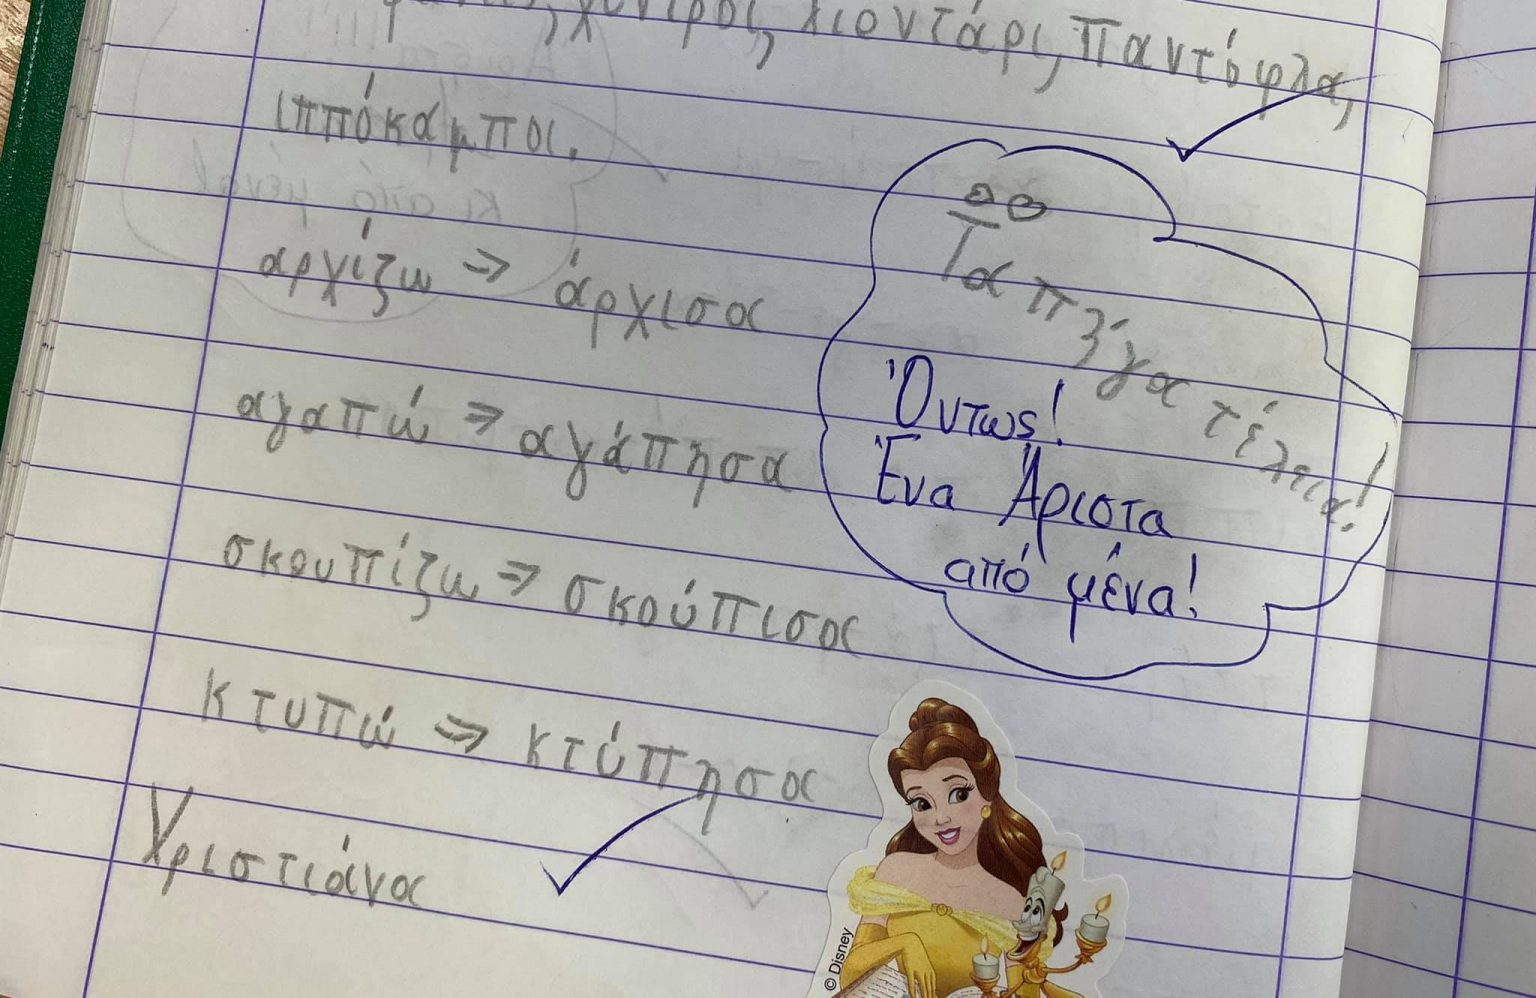 λιοντάρι, παντόφλα,
ιππόκαμποι.
αρχίζω ⇒ άρχισα
αγαπώ ⇒ αγάπησα
σκουπίζω ⇒ σκούπισα
κτυπώ ⇒ κτύπησα
Χριστιάνα
Τα πήγα τέλεια!
Όντως!
Ένα Άριστα
από μένα!
© Disney